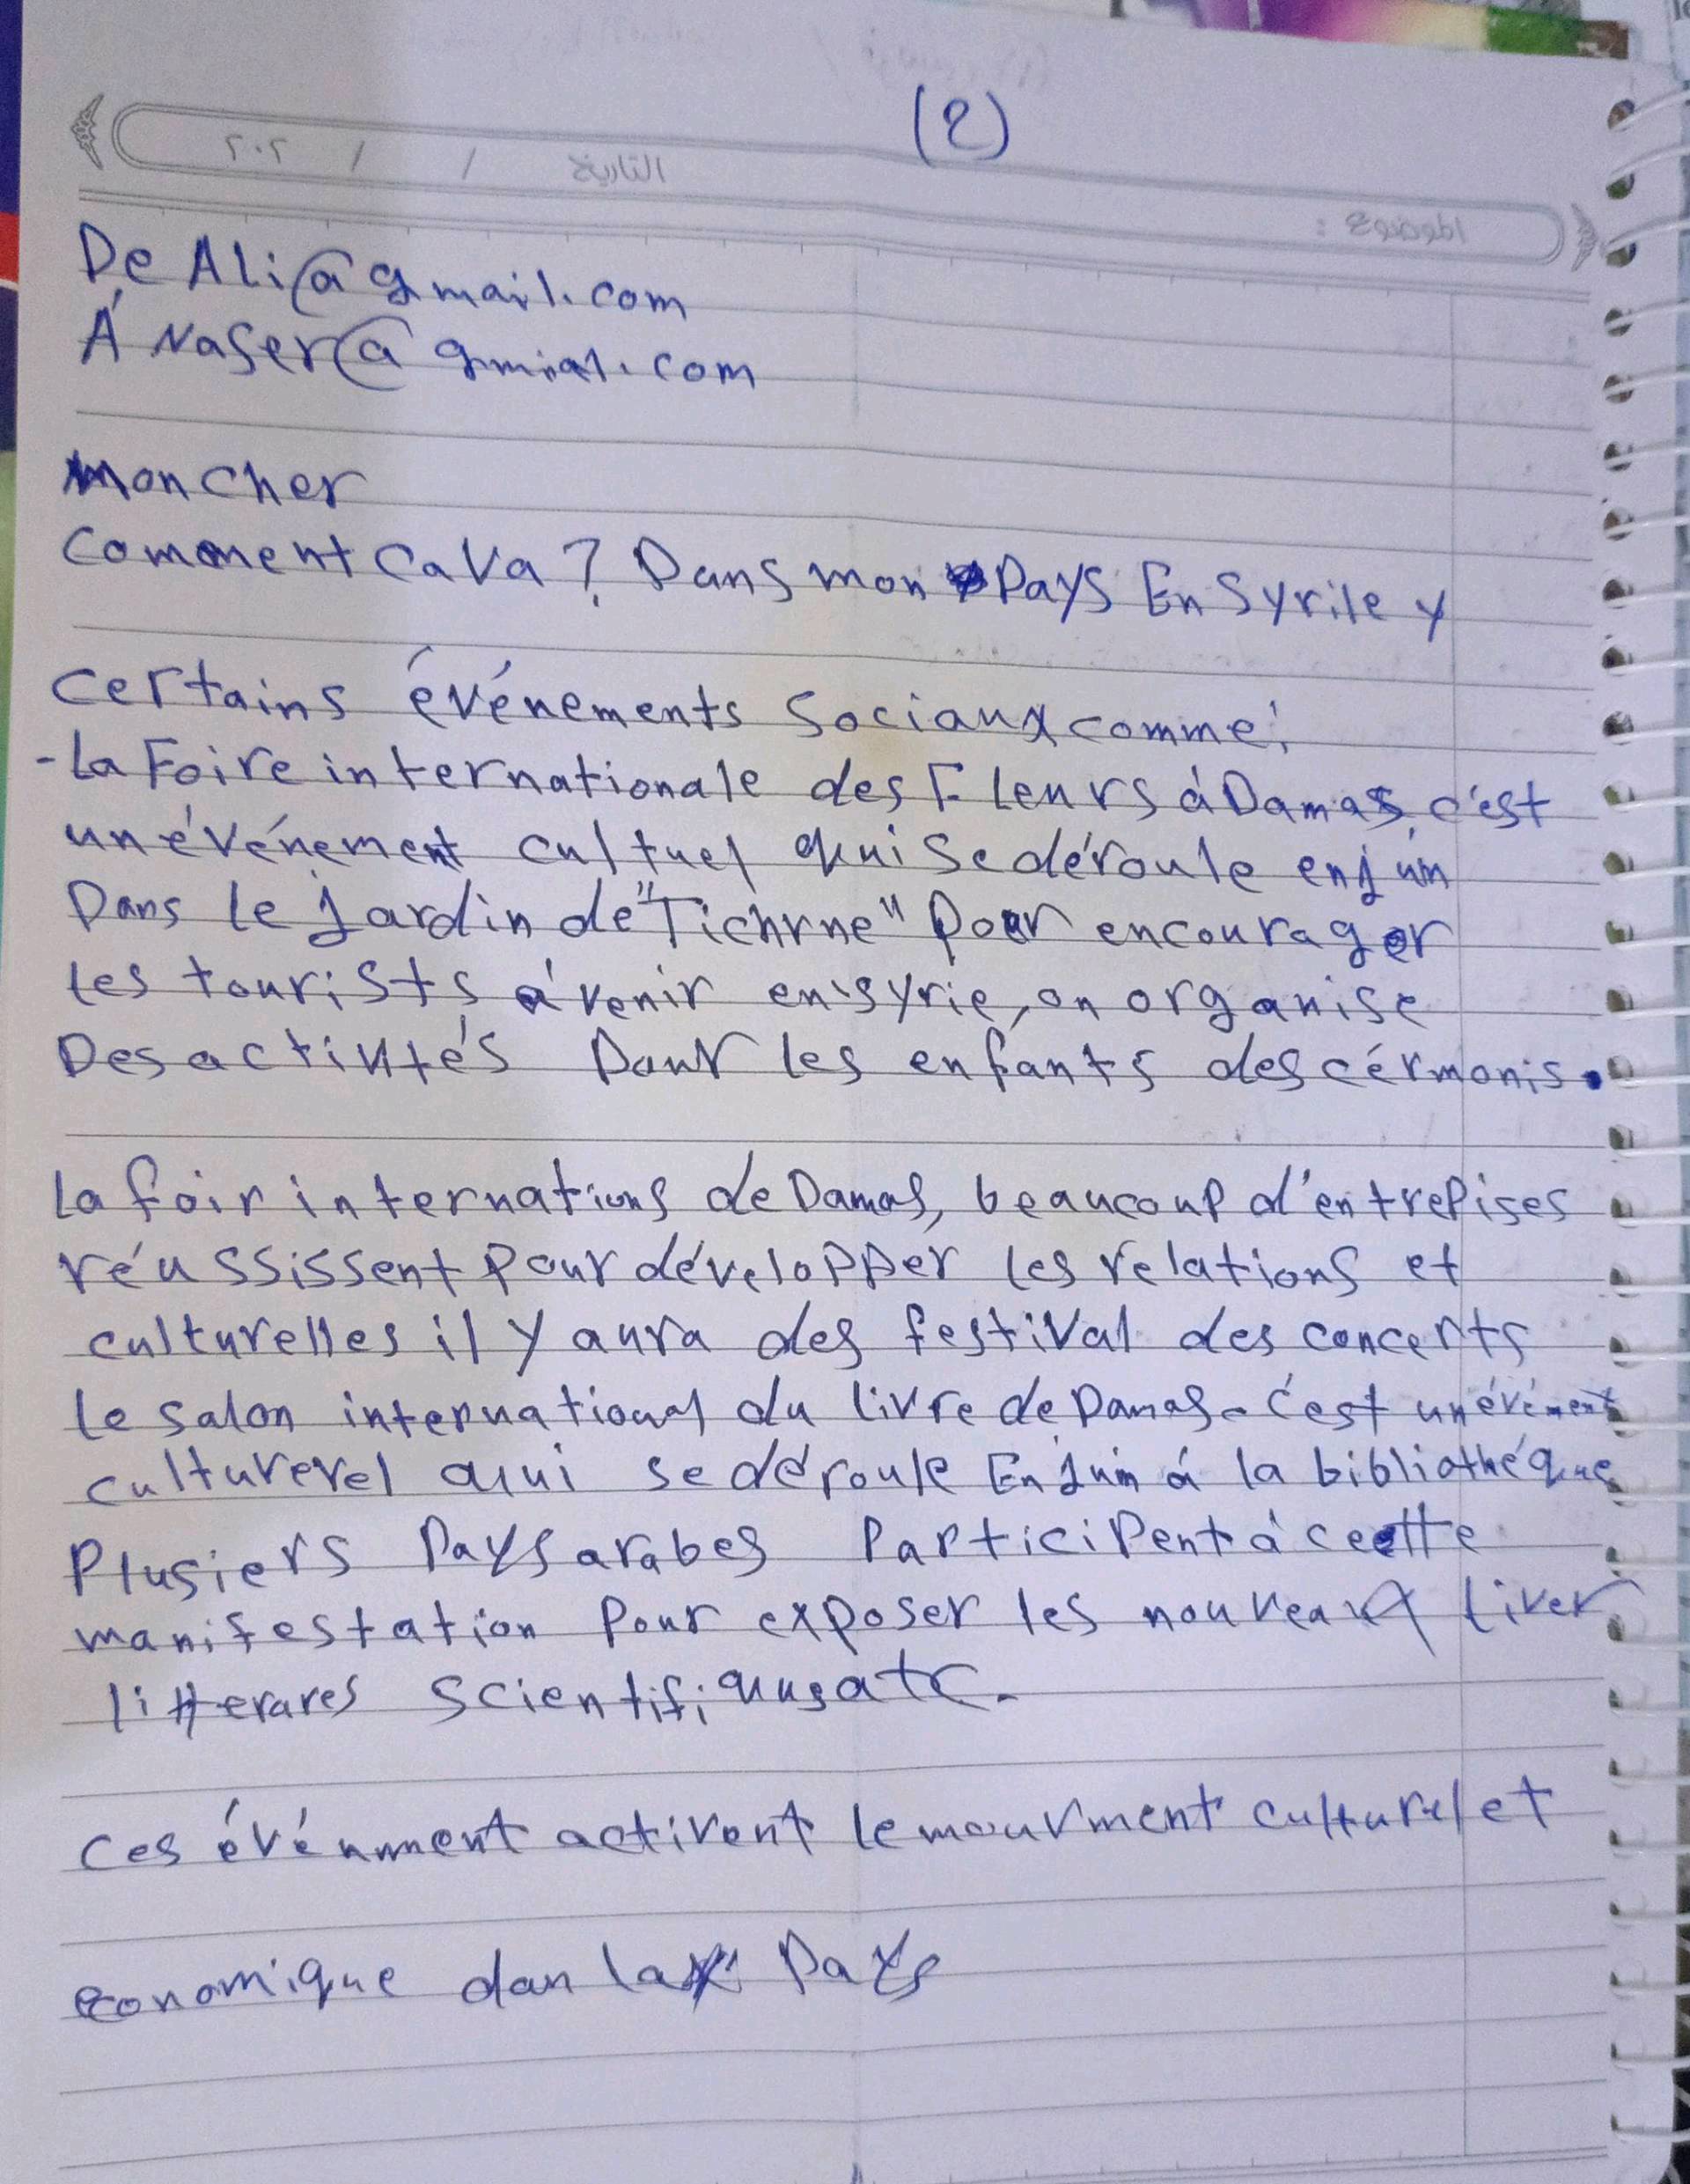 (2)
٢٠٢ / / التاريخ
الموضوع :
De Ali@gmail.com
Á Naser@gmial.com
moncher
comment Cava? Dans mon Pays En Syrile y
certains événements Sociaux comme:
- La Foire internationale des Fleurs á Damas, c'est
un événement cultuel qui Se déroule en juin
Dans le jardin de "Tichrne" Pour encourager
les tourists á venir en syrie, on organise
Des activités Pour les enfants des cérmonis.
La foir internations de Damas, beaucoup d'entrepises
réussissent Pour développer les relations et
culturelles il y aura des festival des concerts
Le salon international du livre de Damas. C'est un événent
culturerel qiui se déroule En Juin á la bibliothéque
Plusiers Pays arabes Participent á cette
manifestation Pour exposer les nouveaux liver
litterares scientifi
Ces événment activent le mouvment culturel et
economique dan la Pays